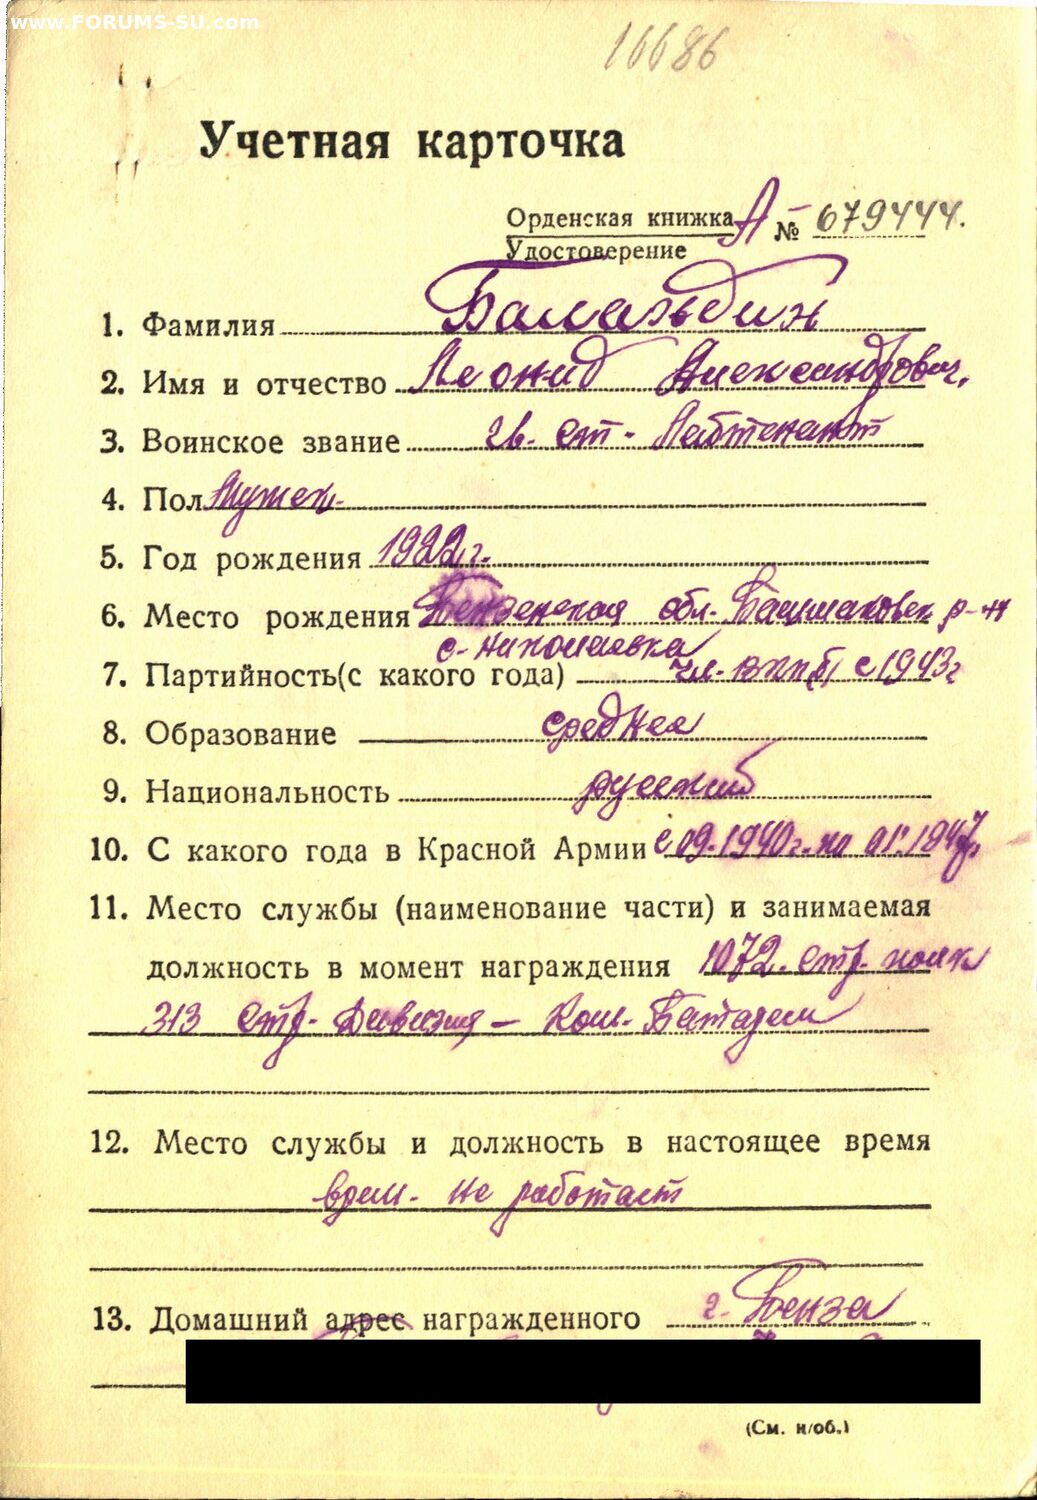 www.FORUMS-SU.com
16686
Учетная карточка
Орденская книжка А № 679444.
Удостоверение
1. Фамилия
2. Имя и отчество Леонид Александрович.
3. Воинское звание гв. ст. Лейтенант
4. Пол Мужск-
5. Год рождения 1922 г.
6. Место рождения Пензенская обл. Башмаковск р-н
с-Николаевка
7. Партийность(с какого года) чл. ВКП(б) с 1943 г
8. Образование среднее
9. Национальность русский
10. С какого года в Красной Армии с 09.1940 г. по 01.1947
11. Место службы (наименование части) и занимаемая
должность в момент награждения 1072. Стр. полк
313 Стр. Дивизия – Ком. Батареи
12. Место службы и должность в настоящее время
врем. не работает
13. Домашний адрес награжденного г. Пенза
(См. н/об.)